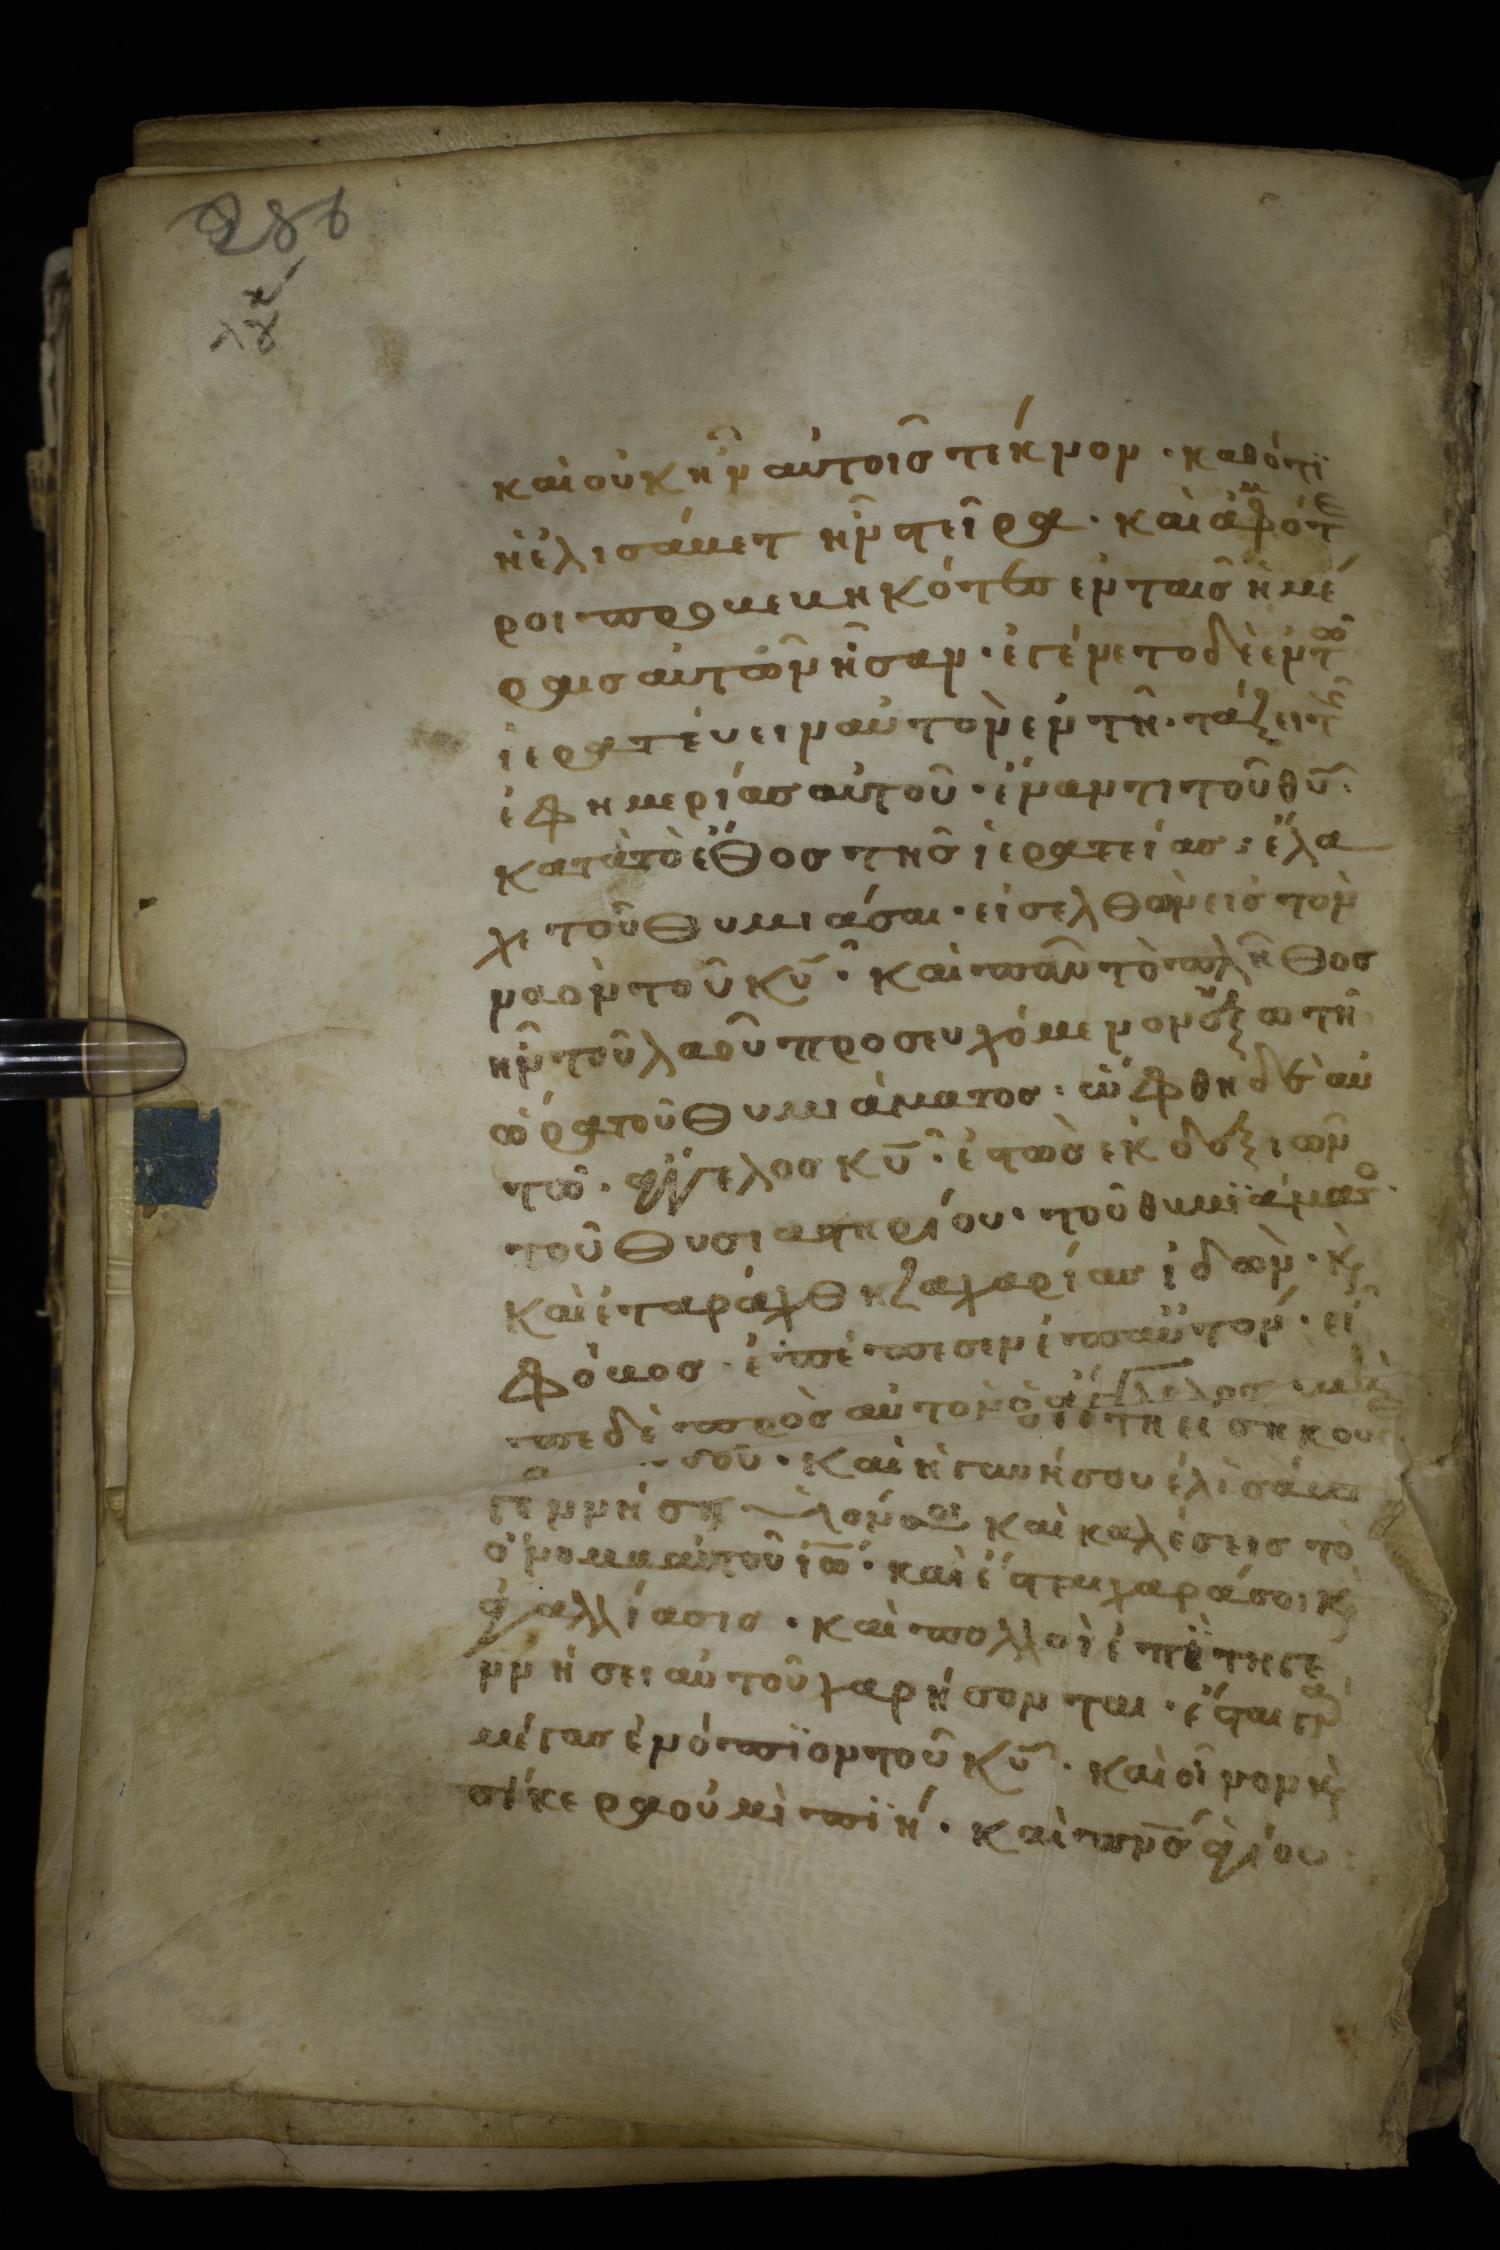 286
καὶ οὐκ ἦν αὐτοῖς τέκνον · καθότϊ
ἡ ἐλισάβετ ἦν στεῖρα · καὶ ἀμφότε
ροι προβεβηκότες ἐν ταῖς ἡμέ
ραις αὐτῶν ἦσαν · ἐγένετο δὲ ἐν τῶ
ἱερατέυειν αὐτὸν ἐν τῆ · τάξει τῆς
ἐφημερίας αὐτοῦ · ἔναντι τοῦ θῦ ·
κατὰ τὸ ἔθος τῆς ἱερατείας : ἔλα
χε τοῦ θυμιάσαι · εἰσελθὼν εἰς τὸν
ναὸν τοῦ κῦ · καὶ πᾶν τὸ πλῆθος
ἦν τοῦ λαοῦ προσευχόμενον ἔξω τῆ
ὥρα τοῦ θυμιάματος : ὤφθη δὲ αὐ
τῶ · ἄγγελος κῦ · ἐστὼς ἐκ δεξιῶν
τοῦ θυσιαστηρίου · τοῦ θυμϊάματο
καὶ ἐταράχθη ζαχαρίας ἰδὼν · κὶ
φόβος · ἐπέπεσεν ἐπ αὐτόν · εἶ
πε δὲ πρὸς αὐτὸν ὁ ἄγγελος · μὴ
διότι εἰσηκούσ
σου · καὶ ἡ γυνή σου ἐλισάβ
γεννήση καὶ καλέσεις τὸ
ὄνομα αὐτοῦ ἰω · καὶ ἔσται χαρά σοι κὶ
ἀγαλλίασις · καὶ πολλοὶ ἐπῒ τῆ γε
ννήσει αὐτοῦ χαρήσονται · ἔσται γὰρ
μέγας ἐνόπϊον τοῦ κῦ · καὶ οἶνον κὶ
σίκερα οὐ μὶ πϊή · καὶ πνς ἁγίου